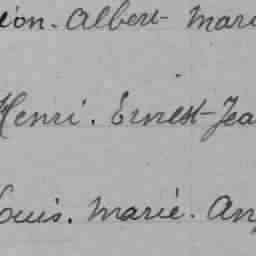 éon. Albert Mari
Henri. Ernest-Jea
ouis. Marie. An